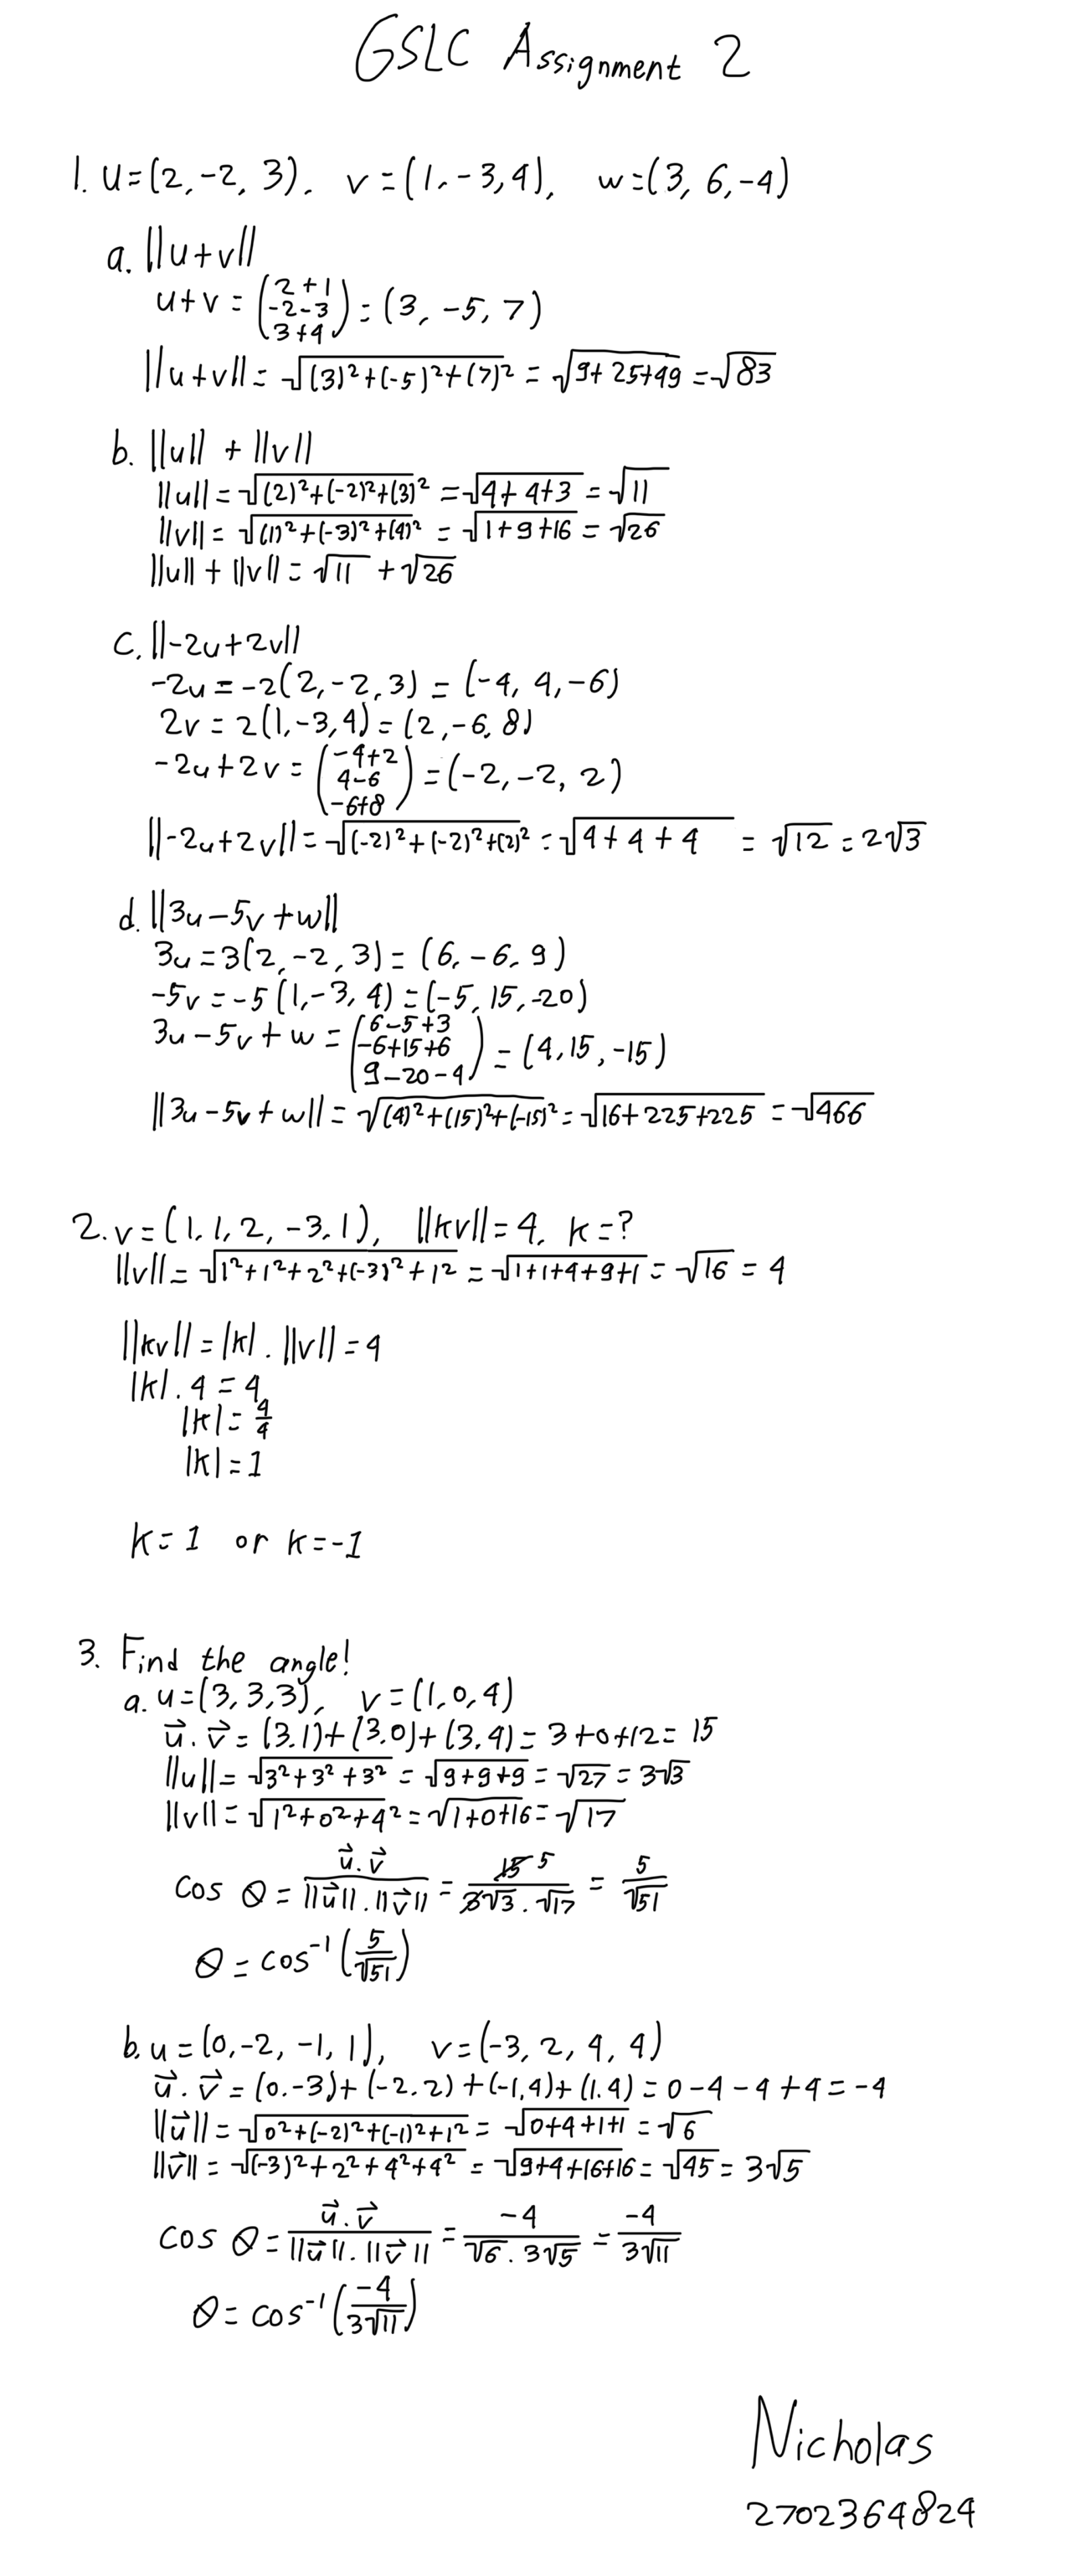 GSLC Assignment 2
1. u=(2,-2, 3), v=(1,-3,4), w=(3, 6,-4)
a. ||u+v||
u+v = (2+1 -2-3 3+4) = (3, -5, 7)
||u+v|| = √(3)²+(-5)²+(7)² = √9+25+49 = √83
b. ||u|| + ||v||
||u|| = √(2)²+(-2)²+(3)² = √4+4+3 = √11
||v|| = √(1)²+(-3)²+(4)² = √1+9+16 = √26
||u|| + ||v|| = √11 + √26
c. ||-2u+2v||
-2u = -2(2,-2,3) = (-4, 4,-6)
2v = 2(1,-3,4) = (2,-6,8)
-2u+2v = (-4+2 4-6 -6+8) = (-2,-2, 2)
||-2u+2v|| = √(-2)²+(-2)²+(2)² = √4+4+4 = √12 = 2√3
d. ||3u-5v+w||
3u = 3(2,-2,3) = (6,-6,9)
-5v = -5(1,-3,4) = (-5,15,-20)
3u-5v+w = (6-5+3 -6+15+6 9-20-4) = (4,15,-15)
||3u-5v+w|| = √(4)²+(15)²+(-15)² = √16+225+225 = √466
2. v=(1,1,2,-3,1), ||kv||=4, k=?
||v|| = √1²+1²+2²+(-3)²+1² = √1+1+4+9+1 = √16 = 4
||kv|| = |k| . ||v|| = 4
|k| . 4 = 4
|k| = 4/4
|k| = 1
k=1 or k=-1
3. Find the angle!
a. u=(3,3,3), v=(1,0,4)
u⃗.v⃗ = (3.1)+(3.0)+(3.4) = 3+0+12 = 15
||u|| = √3²+3²+3² = √9+9+9 = √27 = 3√3
||v|| = √1²+0²+4² = √1+0+16 = √17
cos θ = u⃗.v⃗/||u⃗||.||v⃗|| = 15 5/3√3.√17 = 5/√51
θ = cos⁻¹(5/√51)
b. u=(0,-2,-1,1), v=(-3,2,4,4)
u⃗.v⃗ = (0.-3)+(-2.2)+(-1.4)+(1.4) = 0-4-4+4 = -4
||u⃗|| = √0²+(-2)²+(-1)²+1² = √0+4+1+1 = √6
||v⃗|| = √(-3)²+2²+4²+4² = √9+4+16+16 = √45 = 3√5
cos θ = u⃗.v⃗/||u⃗||.||v⃗|| = -4/√6.3√5 = -4/3√11
θ = cos⁻¹(-4/3√11)
Nicholas
2702364824